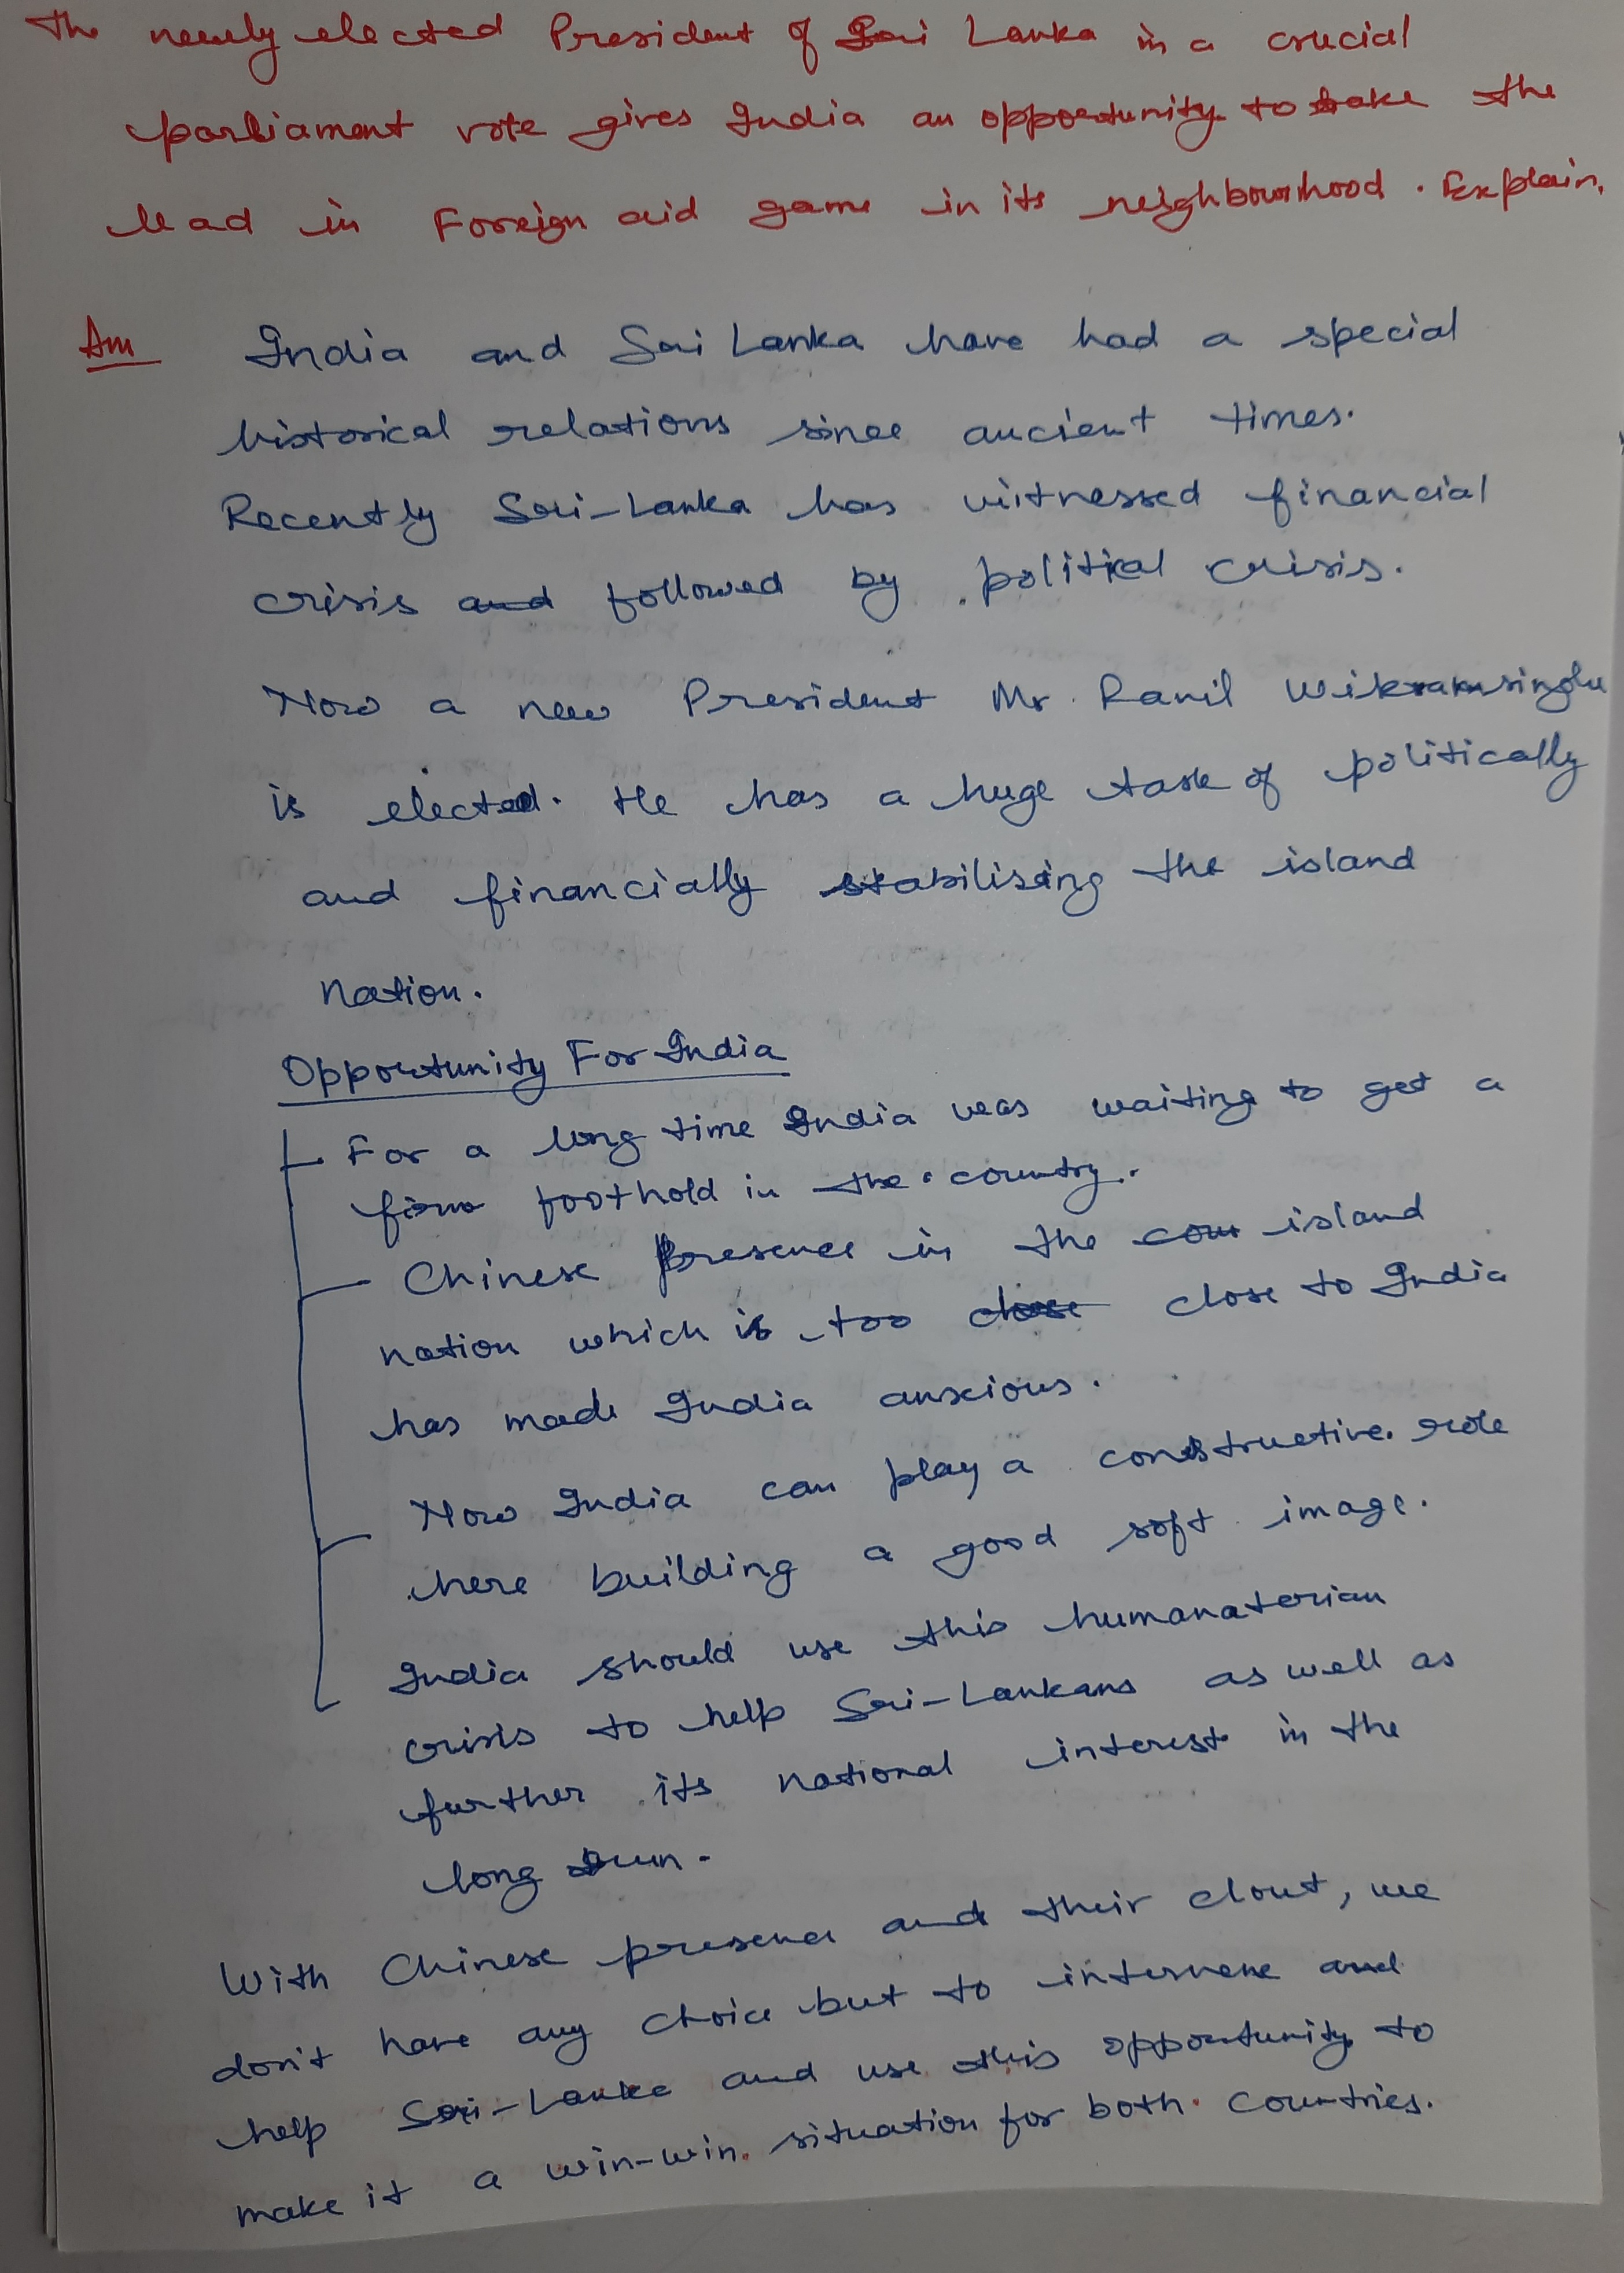 The newly elected President of Sri Lanka in a crucial
parliament vote gives India an opportunity to take the
lead in Foreign aid game in its neighbourhood. Explain.
Ans India and Sri Lanka have had a special
historical relations since ancient times.
Recently Sri-Lanka has witnessed financial
crisis and followed by political crisis.
Now a new President Mr. Ranil Wikramsinghe
is elected. He has a huge task of politically
and financially stabilising the island
nation.
Opportunity For India
For a long time India was waiting to get a
firm foothold in the country.
Chinese presence in the cou island
nation which is too close close to India
has made India anxious.
Now India can play a constructive role
here building a good soft image.
India should use this humanaterian
crisis to help Sri-Lankans as well as
further its national interest in the
long run.
With Chinese presence and their clout, we
don't have any choice but to intervene and
help Sri-Lanka and use this opportunity to
make it a win-win situation for both countries.